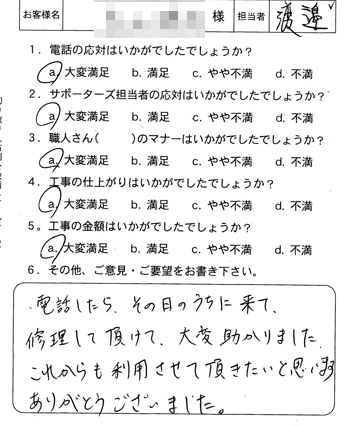 お客様名 様 担当者 渡邉
1．電話の応対はいかがでしたでしょうか？
a. 大変満足 b. 満足 c. やや不満 d. 不満
2．サポーターズ担当者の応対はいかがでしたでしょうか？
a. 大変満足 b. 満足 c. やや不満 d. 不満
3．職人さん（ ）のマナーはいかがでしたでしょうか？
a. 大変満足 b. 満足 c. やや不満 d. 不満
4．工事の仕上がりはいかがでしたでしょうか？
a. 大変満足 b. 満足 c. やや不満 d. 不満
5．工事の金額はいかがでしたでしょうか？
a. 大変満足 b. 満足 c. やや不満 d. 不満
6．その他、ご意見・ご要望をお書き下さい。
電話したら、その日のうちに来て、
修理して頂けて、大変助かりました。
これからも利用させて頂きたいと思います
ありがとうございました。